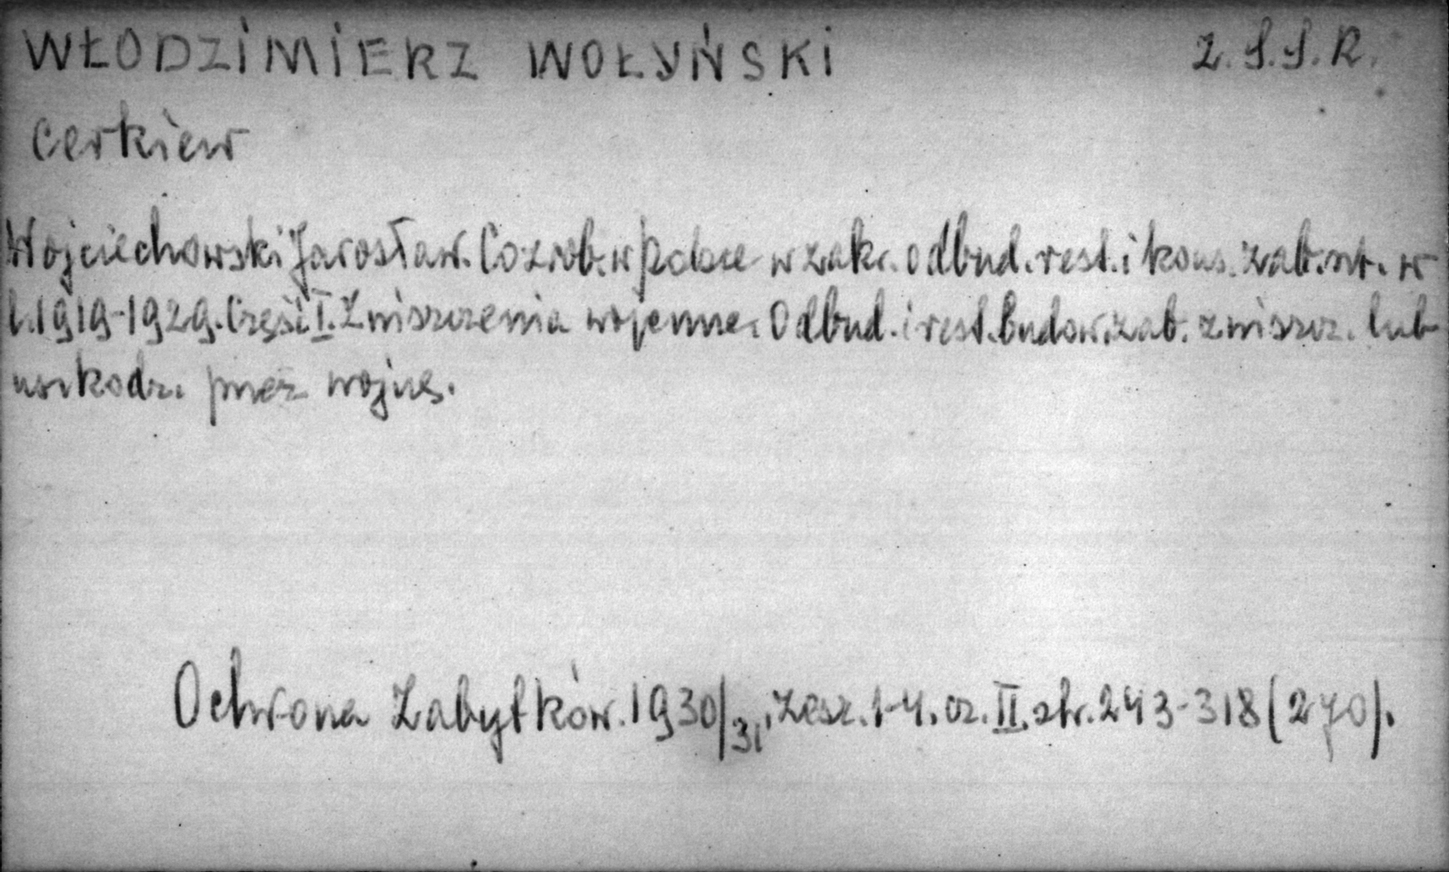 WŁODZIMIERZ WOŁYŃSKI Z.S.S.R.
Cerkiew
Wojciechowski Jarosław. Co zrob. w Polsce w zakr. odbud. rest. i kons. zab. szt. w
l. 1919-1929. Część I. Zniszczenia wojenne. Odbud. i rest. budow. zab. zniszcz. lub
uszkodz. przez wojnę.
Ochrona Zabytków. 1930/31, zesz. 1-4. cz. II. str. 243-318 (270).